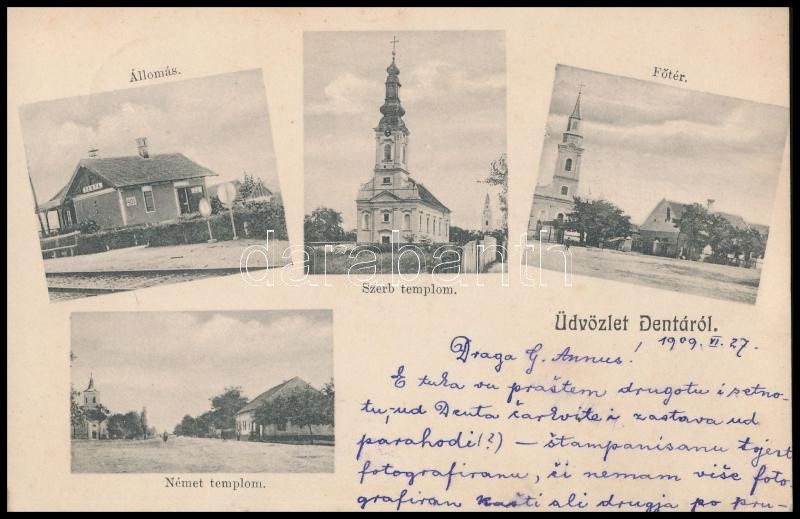 Állomás.
Főtér.
DENTA
Szerb templom.
darabanth
Üdvözlet Dentáról.
1909. VI. 27.
Draga G. Annus!
E tuka vu praštem drugotu i setno-
tu, ud Denta čarkvite i zastava ud
parahodi (!?) — štampanisanu
fotografiranu, či nemam više foto-
grafiran kašti ali drugja po pru-
Német templom.